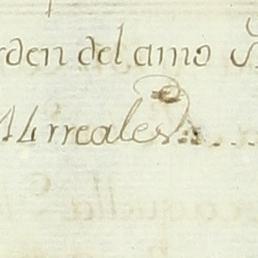 rden del amo S
14 rreales